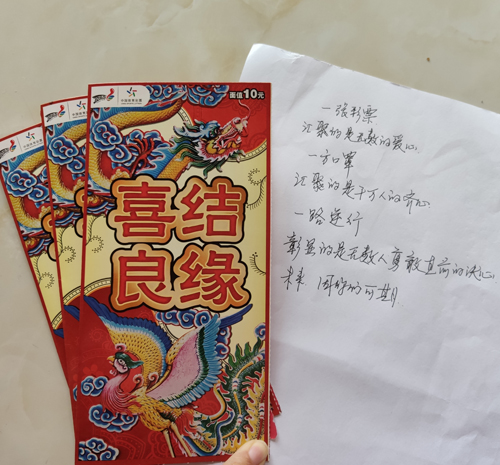 面值10元
中国体育彩票
喜结
良缘
一张彩票
汇聚的是无数的爱心
一方口罩
汇聚的是千万人的齐心
一路逆行
彰显的是无数人勇敢直前的决心
未来 可期